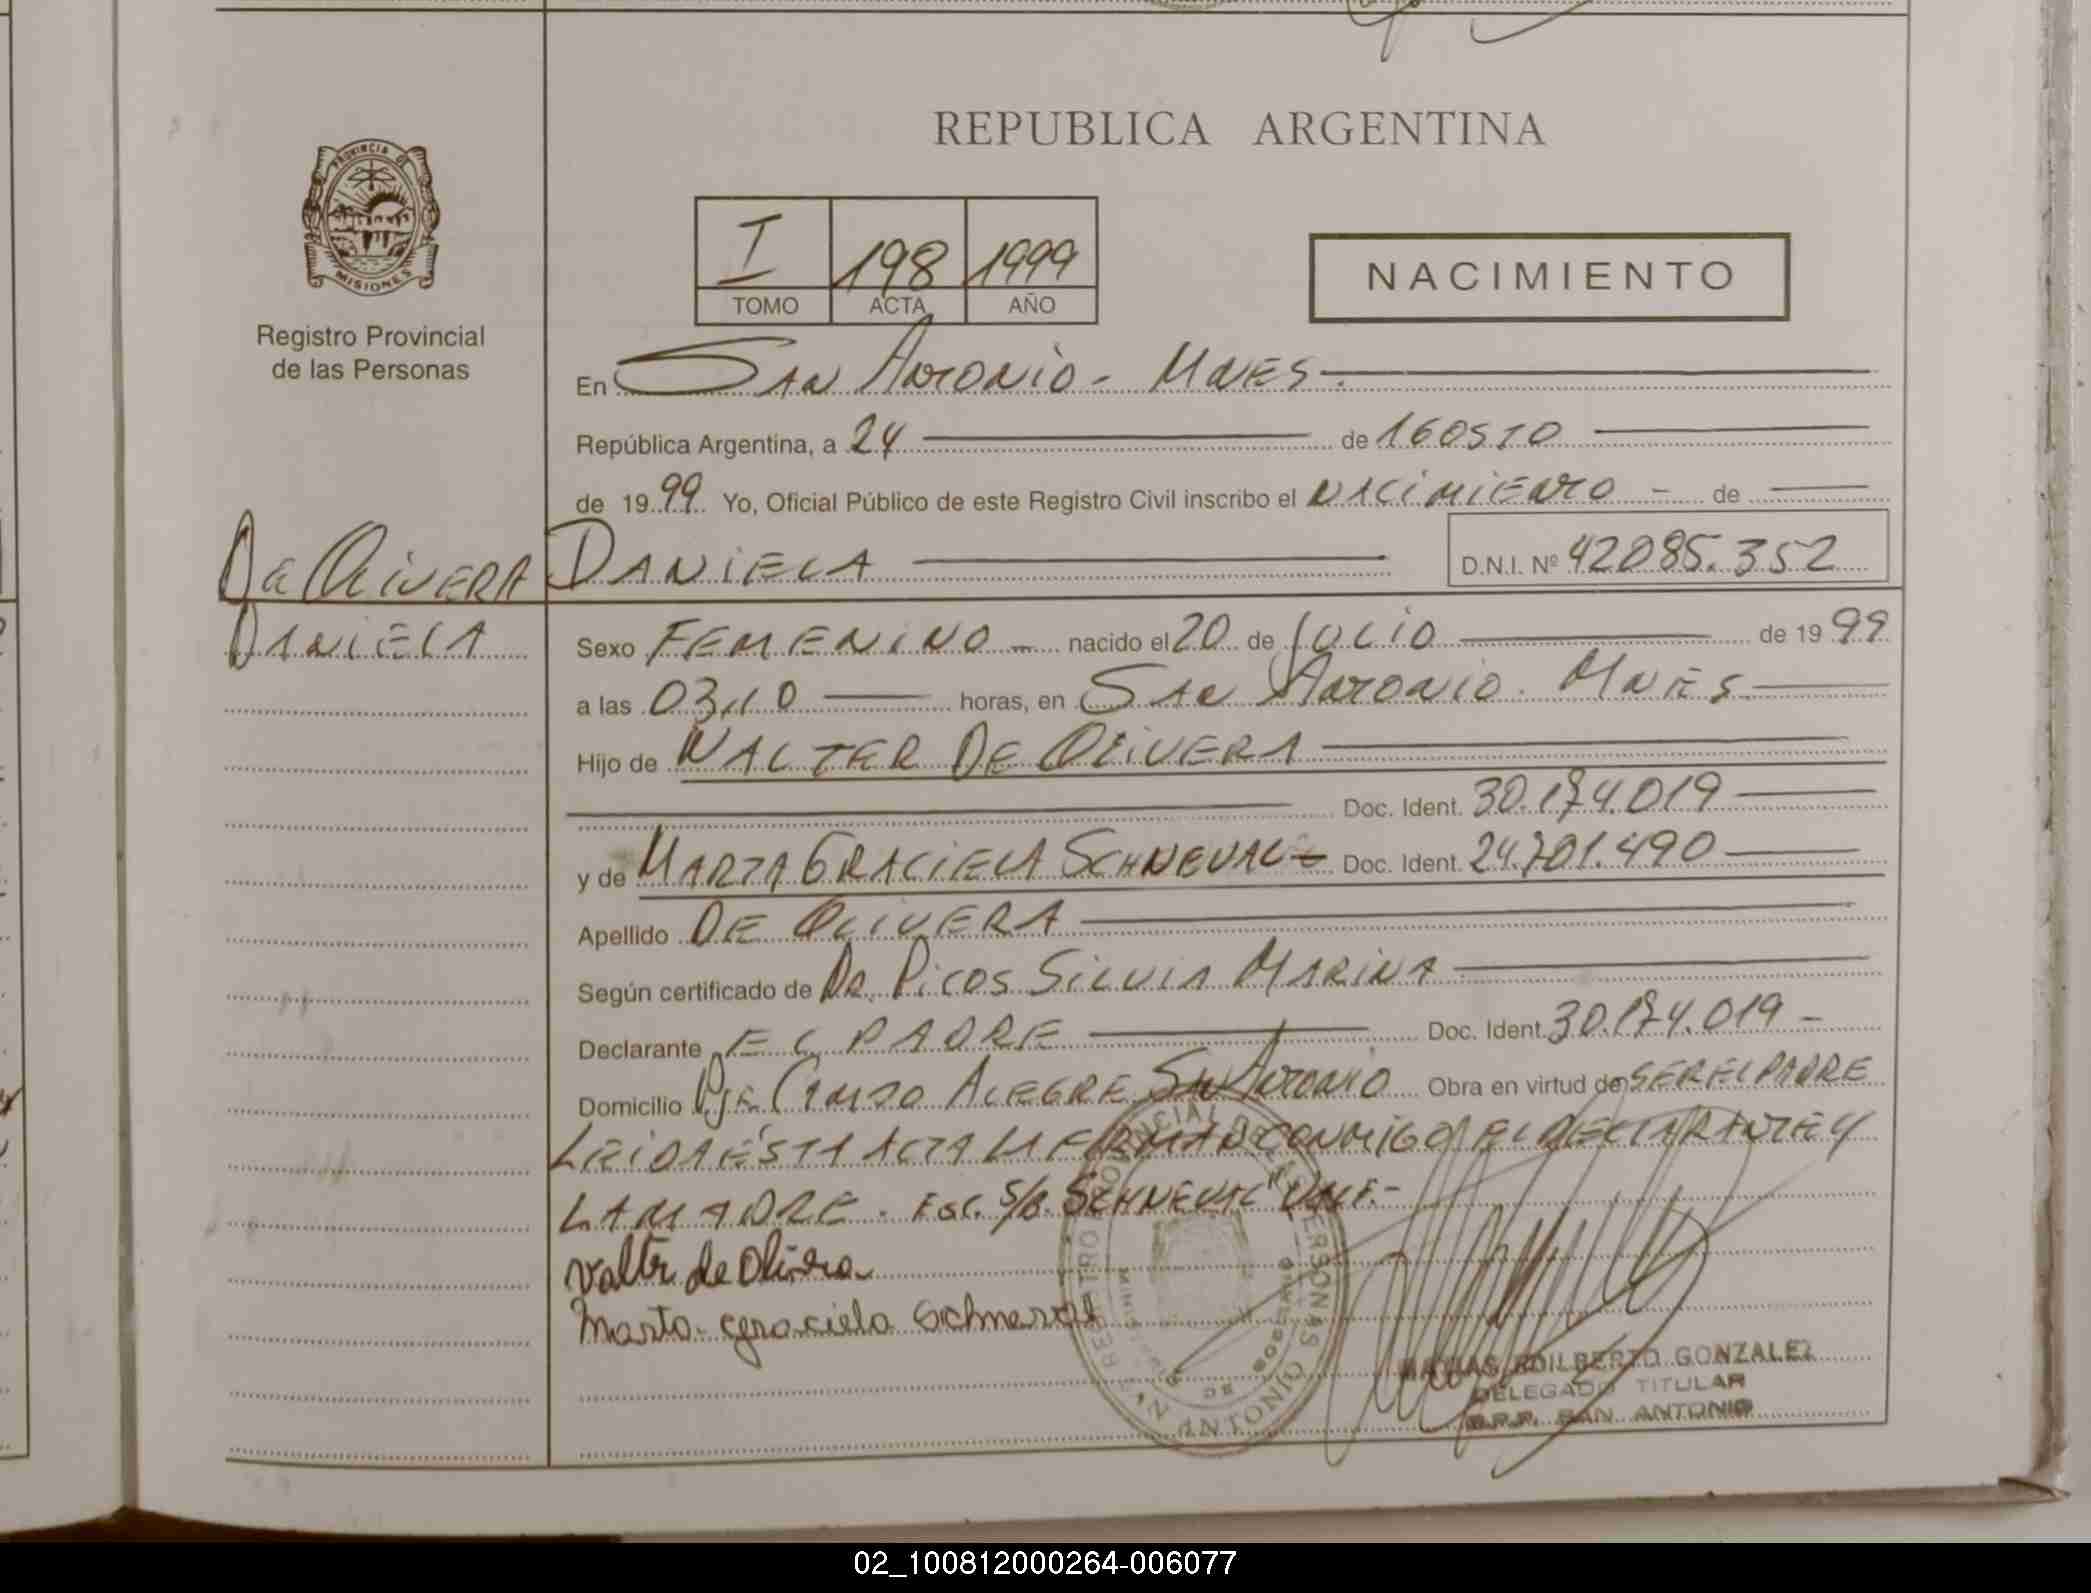 REPUBLICA ARGENTINA
PROVINCIA DE
MISIONES
Registro Provincial
de las Personas
I 198 1999
TOMO ACTA AÑO
NACIMIENTO
En SAN ANTONIO - MNES.
República Argentina, a 24 de AGOSTO
de 1999 Yo, Oficial Público de este Registro Civil inscribo el NACIMIENTO - de
DE OLIVERA DANIELA D.N.I. Nº 42085.352
DANIELA
Sexo FEMENINO - nacido el 20 de JULIO de 1999
a las 03,10 horas, en SAN ANTONIO. MNES.
Hijo de WALTER DE OLIVERA
Doc. Ident. 30.174.019
y de MARTA GRACIELA SCHNEVAL - Doc. Ident. 24.701.490
Apellido DE OLIVERA
Según certificado de DR. PICOS SILVIA MARINA
Declarante EL PADRE Doc. Ident. 30.174.019 -
Domicilio PJE CAMPO ALEGRE SAN ANTONIO Obra en virtud de SER EL PADRE
LEIDA ÉSTA ACTA LA FIRMAN CONMIGO EL DECLARANTE Y
LA MADRE. ESC. S/B. SCHNEVAL" VALE.-
Valter de Olivera
Marta Graciela Schneval
REGISTRO PROVINCIAL DE LAS PERSONAS
MINISTERIO DE GOBIERNO
SAN ANTONIO
MATIAS EDILBERTO GONZALEZ
DELEGADO TITULAR
R.P.P. SAN ANTONIO
02_100812000264-006077